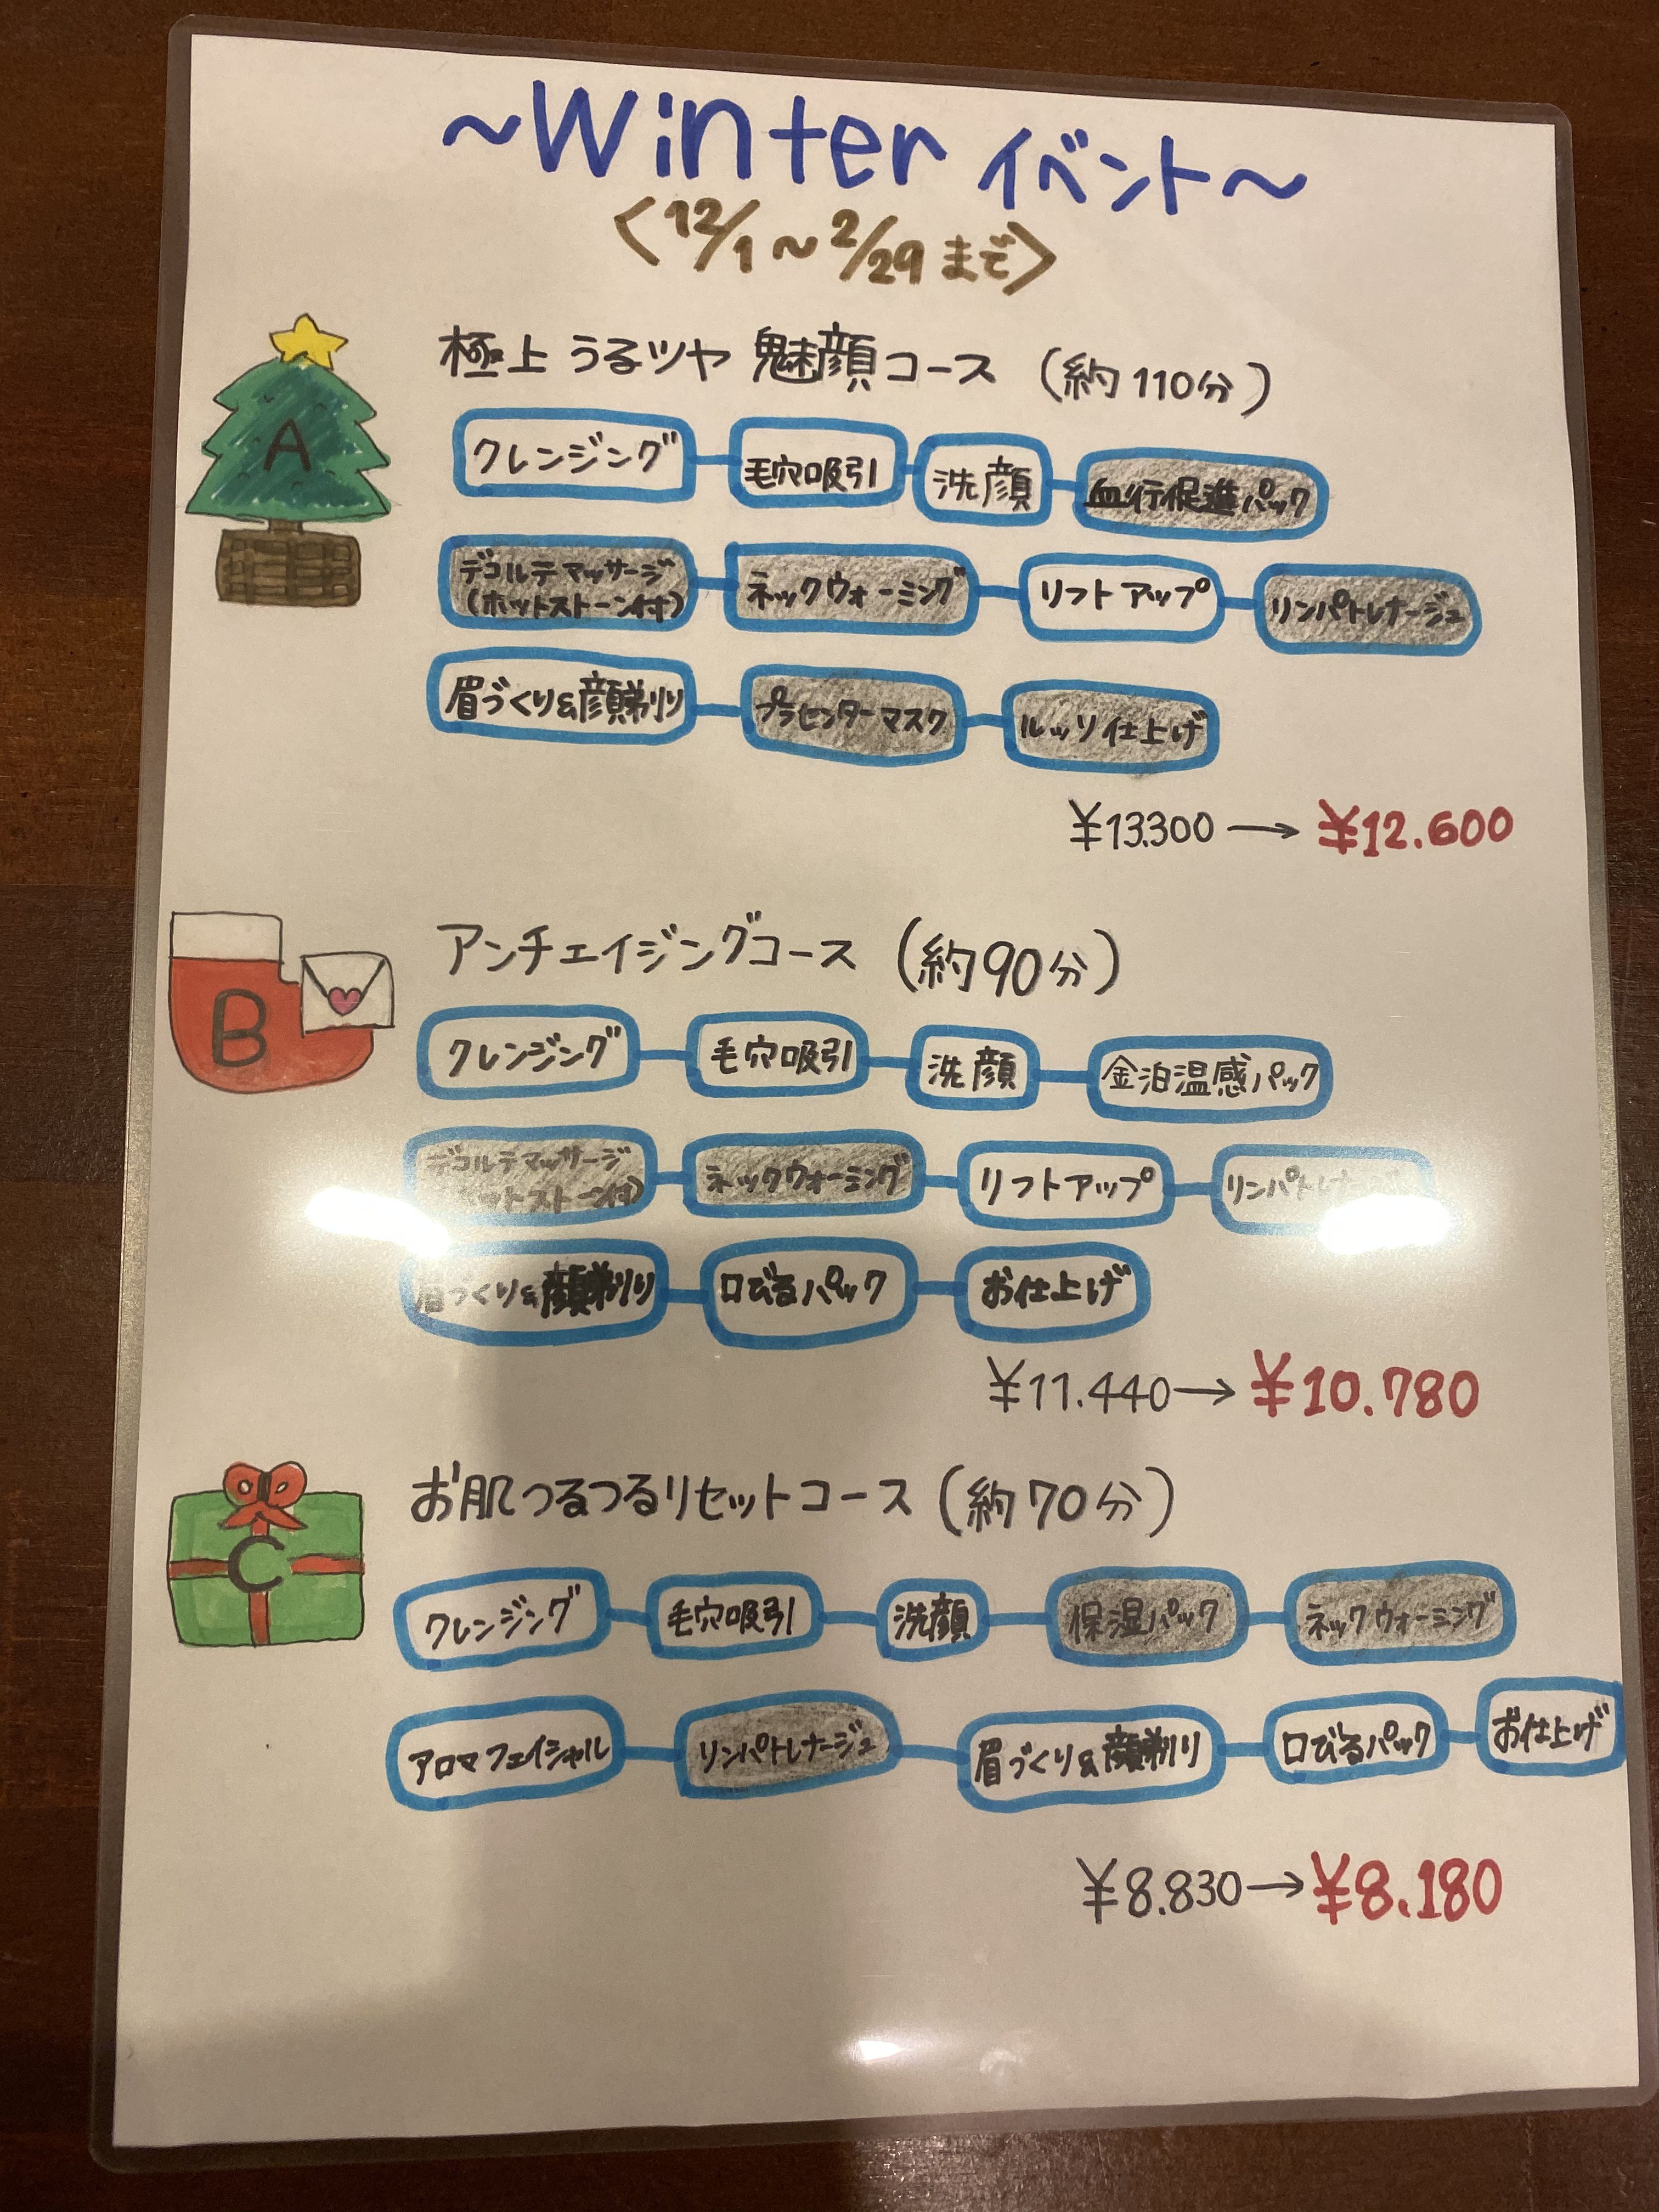 ~Winter イベント~
<12/1 ~ 2/29 まで>
A
極上 うるツヤ 魅顔コース (約110分)
クレンジング 毛穴吸引 洗顔 血行促進パック
デコルテマッサージ ネックウォーミング リフトアップ リンパトレナージュ
(ホットストーン付)
眉づくり&顔剃り プラセンターマスク ルッソ仕上げ
¥13300 → ¥12.600
B
アンチエイジングコース (約90分)
クレンジング 毛穴吸引 洗顔 金泊温感パック
デコルテマッサージ ネックウォーミング リフトアップ
ットストーン付)
眉づくり&顔剃り 口びるパック お仕上げ
¥11.440 → ¥10.780
C
お肌つるつるリセットコース (約70分)
クレンジング 毛穴吸引 洗顔 保湿パック ネックウォーミング
アロマフェイシャル リンパトレナージュ 眉づくり&顔剃り 口びるパック お仕上げ
¥8.830 → ¥8.180